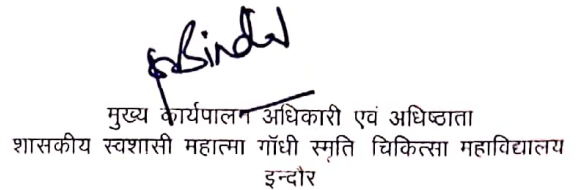 मुख्य कार्यपालन अधिकारी एवं अधिष्ठाता
शासकीय स्वशासी महात्मा गॉधी स्मृति चिकित्सा महाविद्यालय
इन्दौर